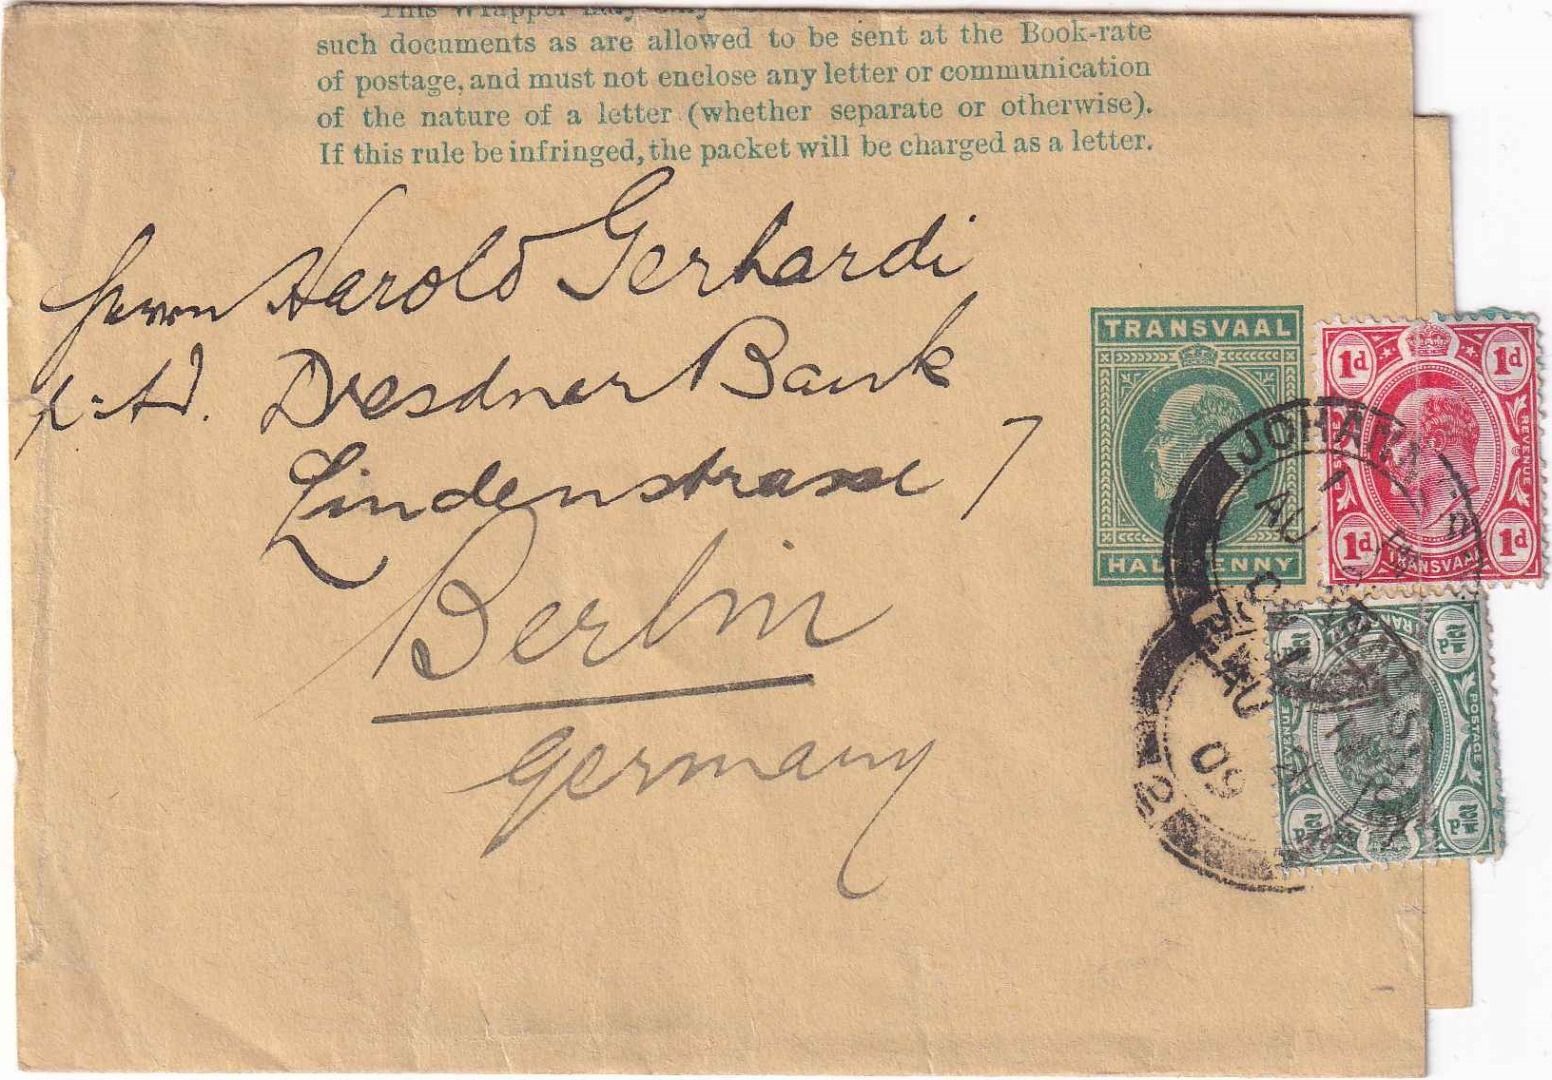 This Wrapper may only
such documents as are allowed to be sent at the Book-rate
of postage, and must not enclose any letter or communication
of the nature of a letter (whether separate or otherwise).
If this rule be infringed, the packet will be charged as a letter.
Herrn Harold Gerhardi
Dresdner Bank
Lindenstrasse 7
Berlin
Germany
TRANSVAAL
HALFPENNY
1d 1d
REVENUE
1d 1d
TRANSVAAL
JOHANN
AU
AU
09
½d
POSTAGE
½d ½d